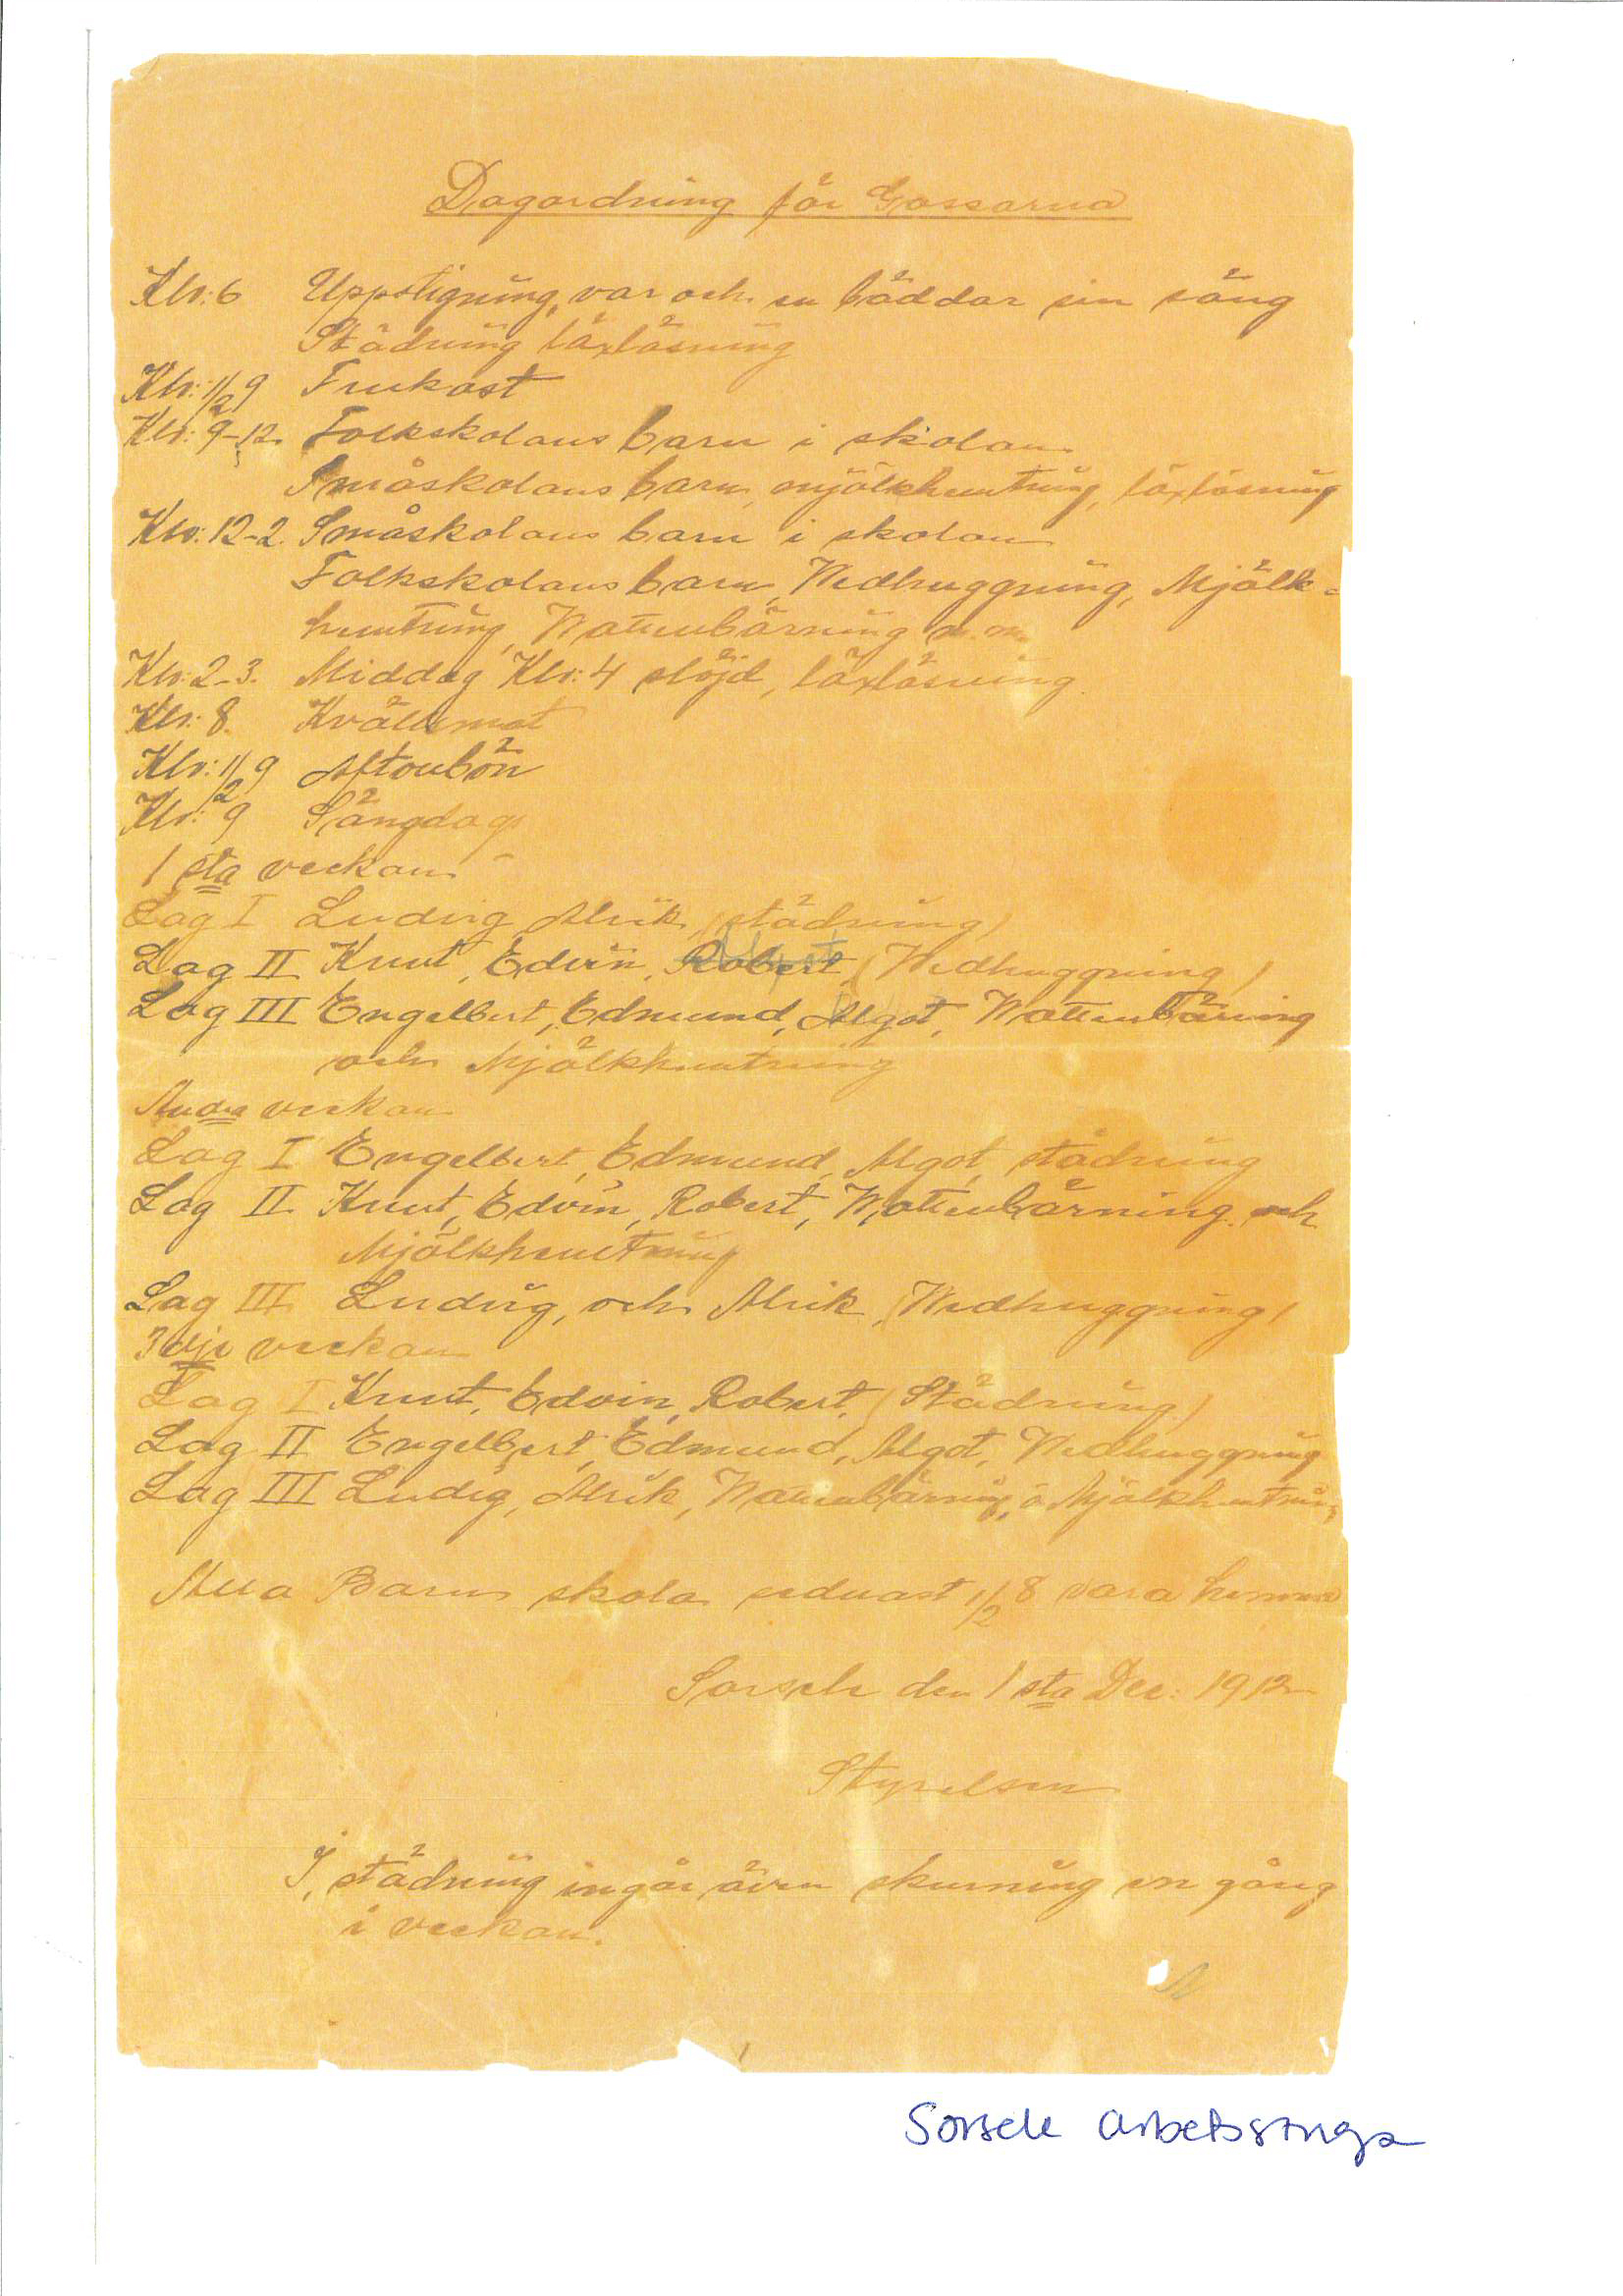 Dagordning för Gossarna
Klr: 6 Uppstigning, var och en bäddar sin säng
Städning läxläsning
Klr: 1/2 9 Frukost
Klr: 9-12. Folkskolans barn i skolan
Småskolans barn, mjölkhemtning, läxläsning
Klr: 12-2. Småskolans barn i skolan
Folkskolans barn, Wedhuggning, Mjölk-
hemtning, Wattenbärning m. m.
Klr: 2-3. Middag Klr: 4 slöjd, läxläsning.
Klr: 8. Kvällsmat
Klr: 1/2 9 Aftonbön
Klr: 9 Sängdags
1 sta veckan
Lag I Ludvig Alrik, (städning)
Lag II Knut, Edvin, Robert, (Wedhuggning)
Lag III Engelbert, Edmund, Algot, Wattenbäring
och Mjölkhemtning
Andra veckan
Lag I Engelbert, Edmund, Algot, städning
Lag II Knut, Edvin, Robert, Wattenbärning och
Mjölkhemtning
Lag III Ludvig, och Alrik, (Wedhuggning)
3 dje veckan
Lag I Knut, Edvin, Robert, (Städning)
Lag II Engelbert, Edmund, Algot, Wedhuggning
Lag III Ludvig, Alrik, Wattenbärning, o Mjölkhemtning
Alla Barn skola sednast 1/2 8 vara hemma
Sorsele den 1 sta Dec: 1912
Styrelsen
I, städning ingår även skurning en gång
i veckan.
Sorsele arbetsstuga